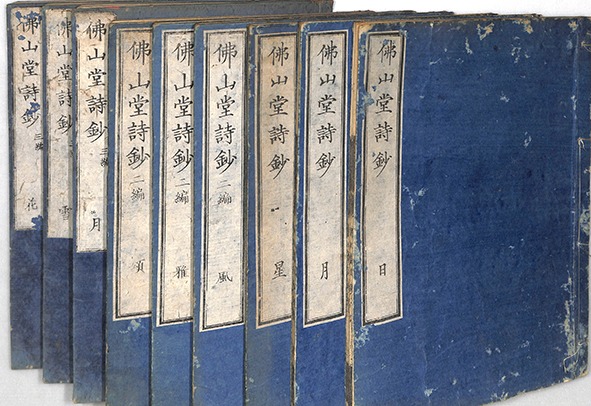 佛山堂詩鈔 日
佛山堂詩鈔 月
佛山堂詩鈔 星
佛山堂詩鈔 二編 風
佛山堂詩鈔 二編 雅
佛山堂詩鈔 二編 頌
佛山堂詩鈔 三編 月
佛山堂詩鈔 雪
佛山堂詩鈔 三編 花